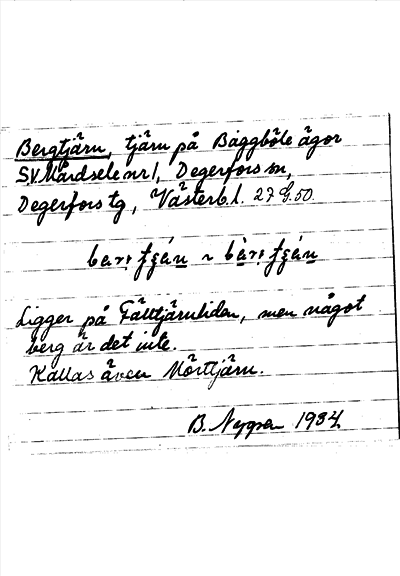 Bergtjärn, tjärn på Bäggböle ägor
S.V. Mårdsele nr 1, Degerfors sn,
Degerfors tg, Västerb. l. 27 G. 50.
Ligger på Fälltjärnliden, men något
berg är det inte.
Kallas även Mörttjärn.
B. Nygren 1934